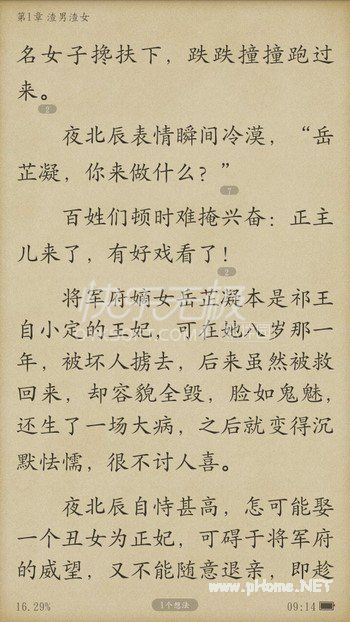 第1章 渣男渣女
名女子搀扶下，跌跌撞撞跑过
来。
2
夜北辰表情瞬间冷漠，“岳
芷凝，你来做什么？”
7
百姓们顿时难掩兴奋：正主
儿来了，有好戏看了！
2
将军府嫡女岳芷凝本是祁王
自小定的王妃，可在她 岁那一
年，被坏人掳去，后来虽然被救
回来，却容貌全毁，脸如鬼魅，
还生了一场大病，之后就变得沉
默怯懦，很不讨人喜。
夜北辰自恃甚高，怎可能娶
一个丑女为正妃，可碍于将军府
的威望，又不能随意退亲，即趁
www.pHome.NET
16.29%
1个想法
09:14